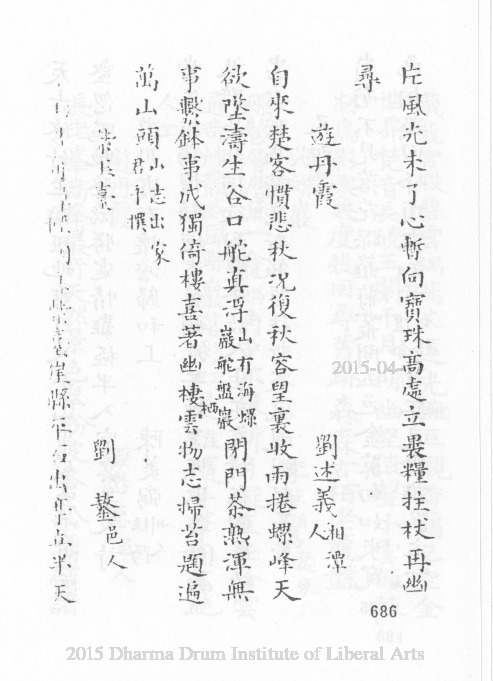 片風光未了心暫向寶珠高處立畏糧拄杖再幽
尋
遊丹霞
劉述義湘潭人
自來楚客慣悲秋况復秋容望裏收雨捲螺峰天
欲墜濤生谷口舵真浮山有海螺巖舵盤巖閉門茶熟渾無
事繫鉢事成獨倚樓喜著幽棲雲物志掃苔題遍
栖
萬山頭山志出家君手撰
紫玉臺
劉鼇邑人
紫玉臺崖懸平石出
半天
686
2015-04
2015 Dharma Drum Institute of Liberal Arts